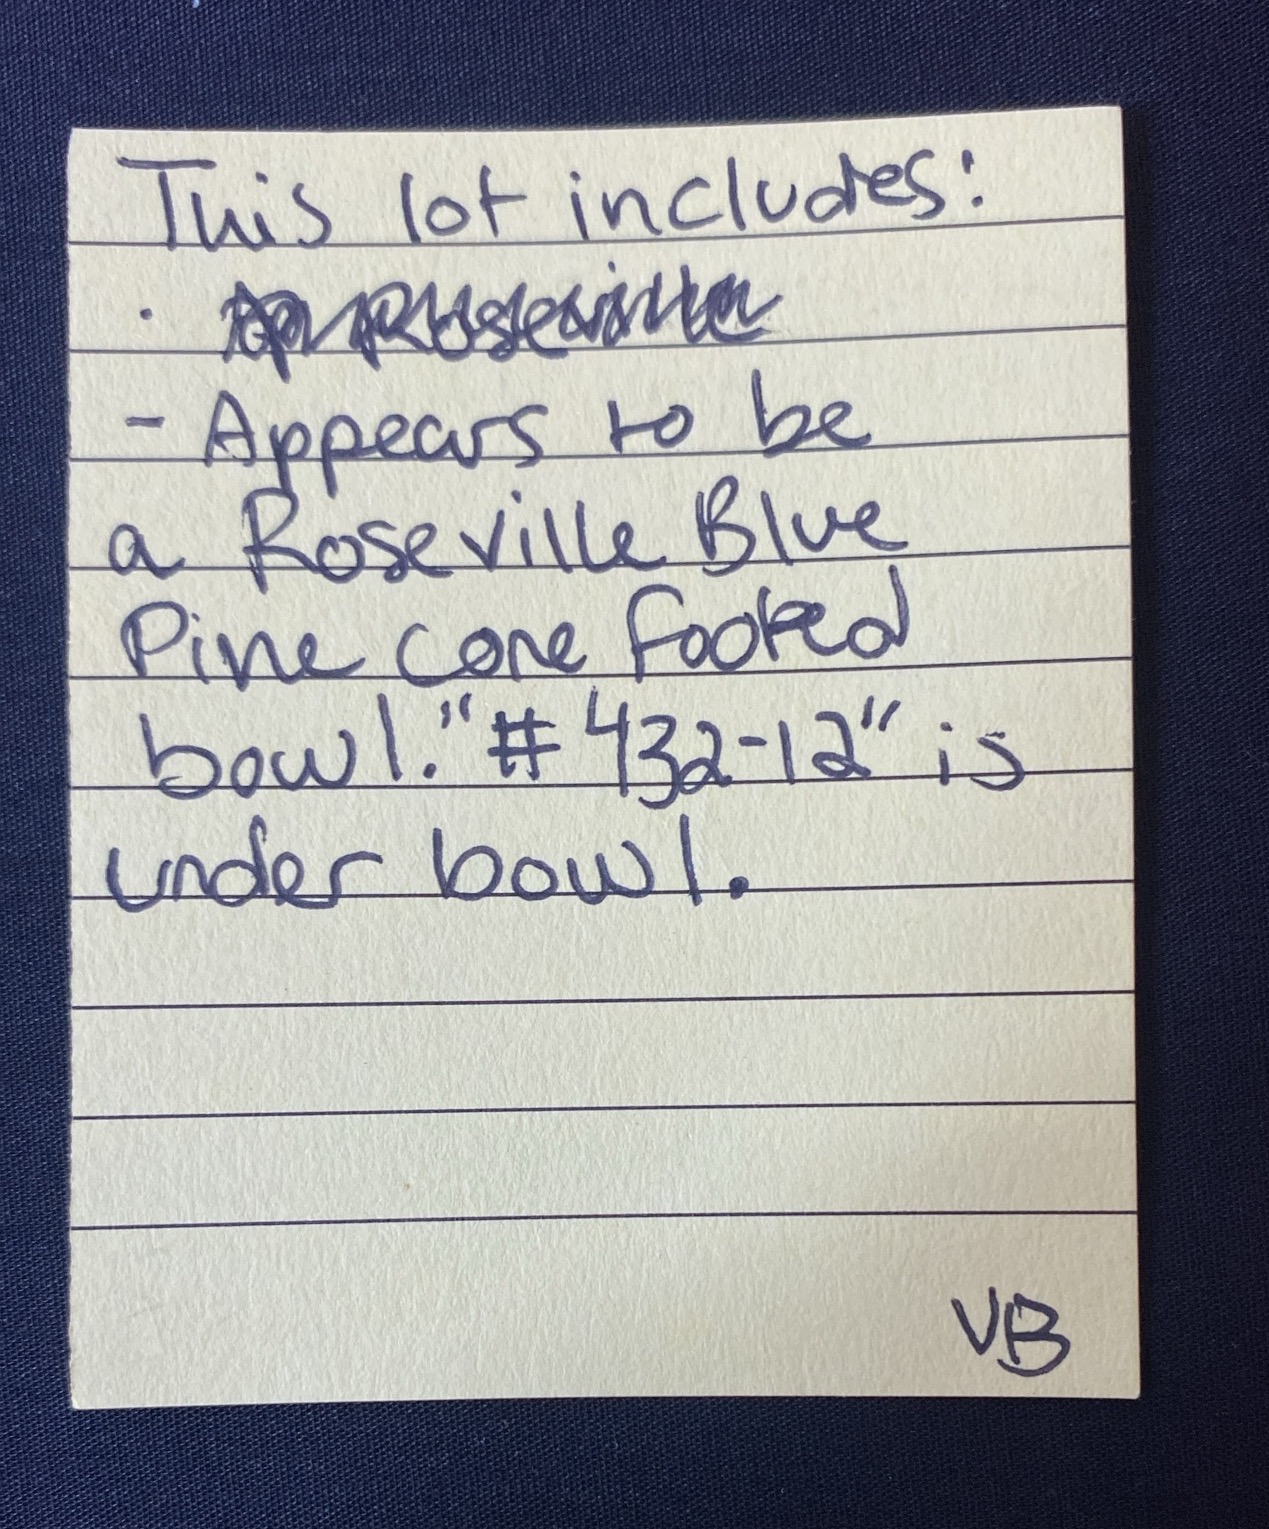 This lot includes:
·
- Appears to be
a Roseville Blue
Pine cone footed
bowl. "# 432-12" is
under bowl.
VB